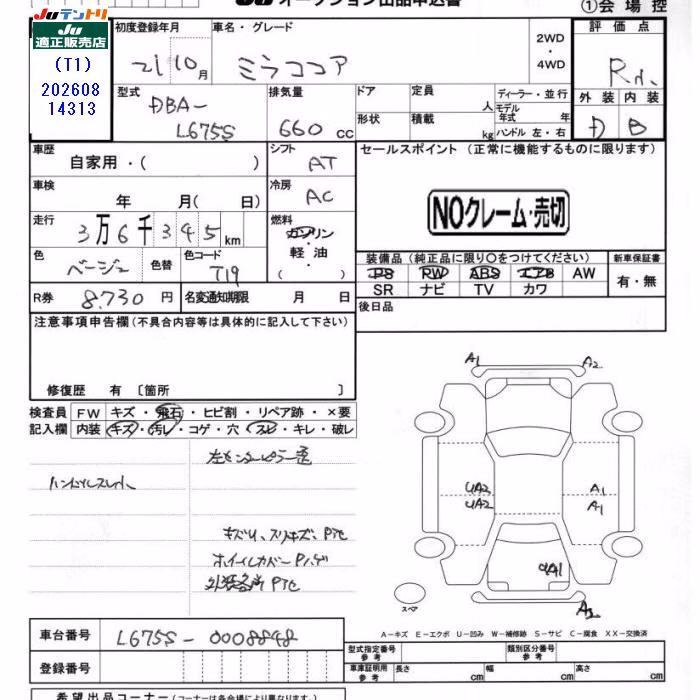 Juテントリ
Ju
適正販売店
(T1)
202608
14313
Ju オークション出品申込書
①会場控
初度登録年月
車名・グレード
2WD
・
4WD
評価点
21 10月
ミラココア
R
型式
排気量
ドア
定員
人
ディーラー・並行
外装
内装
DBA-
L675S
660 cc
形状
積載
kg
モデル年式
年
ハンドル 左・右
D
B
車歴
自家用・( )
シフト
AT
セールスポイント (正常に機能するものに限ります)
車検
年 月( 日)
冷房
AC
NOクレーム・売切
走行
3万6千345km
燃料
ガソリン
軽油
( )
色
ベージュ
色替
色コード
T19
装備品(純正品に限り○をつけてください)
新車保証書
PS RW ABS エアB AW
SR ナビ TV カワ
有・無
R券
8.730円
名変通知期限
月 日
後日品
注意事項申告欄(不具合内容等は具体的に記入して下さい)
修復歴 有〔箇所 〕
検査員
記入欄
FW キズ・飛石・ヒビ割・リペア跡・×要
内装 キズ・汚レ・コゲ・穴・スレ・キレ・破レ
左センターピラー歪
ハンドルスレ
キズU、スリキズ、Pアセ
ホイールカバーPハゲ
外装各所Pアセ
A1
A2
UA2
UA2
A1
A1
UA1
A2
スペア
A-キズ E-エクボ U-凹み W-補修跡 S-サビ C-腐食 XX-交換済
車台番号
L675S-0008848
型式指定番号
参考
類別区分番号
参考
登録番号
車庫証明用
参考
長さ
cm
幅
cm
高さ
cm
希望出品コーナー(コーナーは各会場により異なります)